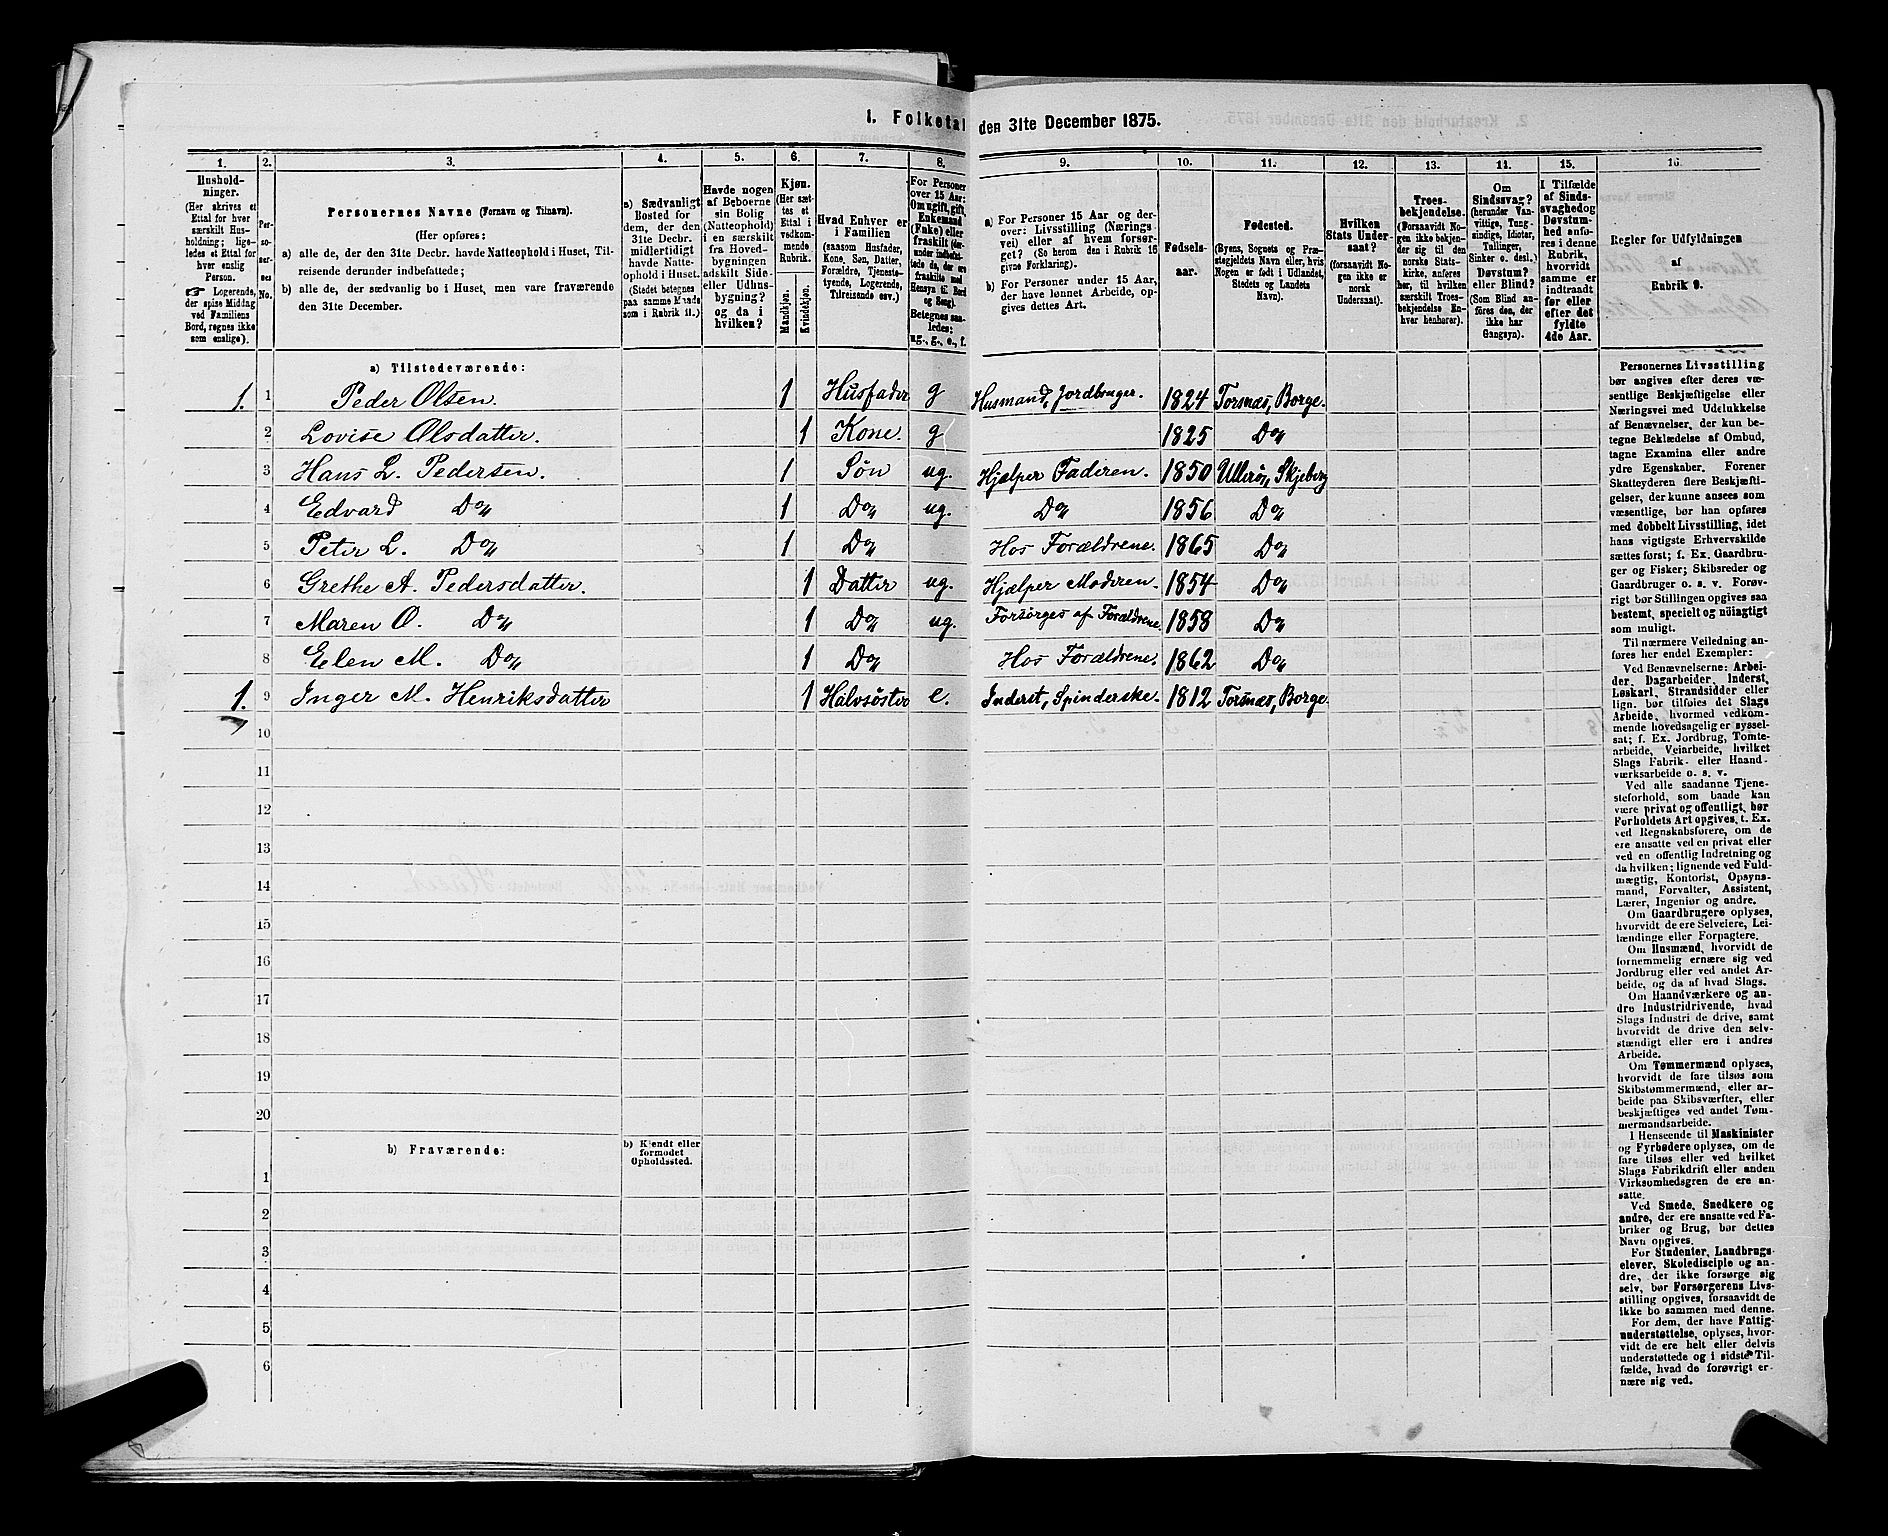 1. Folketal den 31te December 1875.
1. 2. 3. 4. 5. 6. 7. 8. 9. 10. 11. 12. 13. 14. 15. 16.
Husholdninger.
(Her skrives et
Ettal for hver
særskilt Husholdning;
ligeledes et Ettal for
hver enslig
Person.
☞ Logerende,
der spise Middag
ved Familiens
Bord, regnes ikke
som enslige).
Personernes No.
Personernes Navne (Fornavn og Tilnavn).
(Her opføres:
a) alle de, der den 31te Decbr. havde Natteophold i Huset, Tilreisende derunder indbefattede;
b) alle de, der sædvanlig bo i Huset, men vare fraværende
den 31te December.
a) Sædvanligt
Bosted for
dem, der den
31te Decbr.
midlertidigt
havde Natteophold i Huset.
(Stedet betegnes
paa samme Maade
som i Rubrik 11.)
Havde nogen
af Beboerne
sin Bolig
(Natteophold)
i en særskilt
fra Hovedbygningen
adskilt Side-
eller Udhusbygning?
og da i
hvilken?
Kjøn.
(Her sættes et
Ettal i
vedkommende
Rubrik.
Mandkjøn.
Kvindekjøn.
Hvad Enhver er
i Familien
(saasom Husfader,
Kone, Søn, Datter,
Forældre, Tjenestetyende, Logerende,
Tilreisende osv.)
For Personer
over 15 Aar:
Om ugift, gift,
Enkemand
(Enke) eller
fraskilt (derunder indbefattede de, der ere
fraskilte med
Hensyn til Bord
og Seng).
Betegnes saaledes:
ug., g., e., f.
a) For Personer 15 Aar og derover: Livsstilling (Næringsvei) eller af hvem forsørget? (Se herom den i Rubrik 16
givne Forklaring).
b) For Personer under 15 Aar,
der have lønnet Arbeide, opgives dettes Art.
Fødselsaar.
Fødested.
(Byens, Sognets og Præstegjeldets Navn eller, hvis
Nogen er født i Udlandet,
Stedets og Landets
Navn).
Hvilken
Stats Undersaat?
(forsaavidt Nogen ikke er
norsk
Undersaat).
Troesbekjendelse.
(Forsaavidt Nogen ikke bekjender sig til den
norske Statskirke, anføres
her, til hvilken
særskilt Troesbekjendelse Enhver henhører).
Om
Sindssvag?
(herunder Vanvittige, Tungsindige, Idioter,
Tullinger,
Sinker o. desl.)
Døvstum?
eller Blind?
(Som Blind anføres den, der
ikke har
Gangsyn).
I Tilfælde
af Sindssvaghed og
Døvstumhed anføres i denne
Rubrik,
hvorvidt
samme er
indtraadt
før eller
efter det
fyldte
4de Aar.
Regler for Udfyldningen
af
Rubrik 9.
a) Tilstedeværende:
1. 1 Peder Olsen. 1 Husfader g Husmand, Jordbruger. 1824 Torsnæs, Borge.
2 Lovise Olsdatter. 1 Kone. g 1825 Do
3 Hans L. Pedersen. 1 Søn ug. Hjælper Faderen. 1850 Ullerøy, Skjeberg
4 Edvard Do 1 Do ug. Do 1856 Do
5 Peter L. Do 1 Do Hos Forældrene. 1865 Do
6 Grethe A. Pedersdatter. 1 Datter ug. Hjælper Moderen. 1854 Do
7 Maren O. Do 1 Do ug. Forsørges af Forældrene. 1858 Do
8 Elen M. Do 1 Do Hos Forældrene. 1862 Do
1. 9 Inger M. Henriksdatter 1 Halvsøster e. Inderst, Spinderske. 1812 Torsnæs, Borge.
10
11
12
13
14
15
16
17
18
19
20
b) Fraværende:
b) Kjendt eller
formodet
Opholdssted.
1
2
3
4
5
6
Personernes Livsstilling
bør angives efter deres væsentlige Beskjæftigelse eller
Næringsvei med Udelukkelse
af Benævnelser, der kun betegne Beklædelse af Ombud,
tagne Examina eller andre
ydre Egenskaber. Forener
Skatteyderen flere Beskjæftigelser, der kunne ansees som
væsentlige, bør han opføres
med dobbelt Livsstilling, idet
hans vigtigste Erhvervskilde
sættes først; f. Ex. Gaardbruger og Fisker; Skibsreder og
Gaardbruger o. s. v. Forøvrigt bør Stillingen opgives saa
bestemt, specielt og nøiagtigt
som muligt.
Til nærmere Veiledning anføres her endel Exempler:
Ved Benævnelserne: Arbeider, Dagarbeider, Inderst,
Løskarl, Strandsidder eller
lign. bør tilføies det Slags
Arbeide, hvormed vedkommende hovedsagelig er sysselsat; f. Ex. Jordbrug, Tomtearbeide, Veiarbeide, hvilket
Slags Fabrik- eller Haandværksarbeide o. s. v.
Ved alle saadanne Tjenesteforhold, som baade kan
være privat og offentligt, bør
Forholdets Art opgives, t. Ex.
ved Regnskabsførere, om de
ere ansatte ved en privat eller
ved en offentlig Indretning og
da hvilken; lignende ved Fuldmægtig, Kontorist, Opsynsmand, Forvalter, Assistent,
Lærer, Ingeniør og andre.
Om Gaardbrugere oplyses,
hvorvidt de ere Selveiere, Leilændinge eller Forpagtere.
Om Husmænd, hvorvidt de
fornemmelig ernære sig ved
Jordbrug eller ved andet Arbeide, og da af hvad Slags.
Om Haandværkere og andre Industridrivende, hvad
Slags Industri de drive, samt
hvorvidt de drive den selvstændigt eller ere i andres
Arbeide.
Om Tømmermænd oplyses,
hvorvidt de fare tilsøs som
Skibstømmermænd, eller arbeide paa Skibsværfter, eller
beskjæftiges ved andet Tømmermandsarbeide.
I Henseende til Maskinister
og Fyrbødere oplyses, om de
fare tilsøs eller ved hvilket
Slags Fabrikdrift eller anden
Virksomhedsgren de ere ansatte.
Ved Smede, Snedkere og
andre, der ere ansatte ved Fabriker og Brug, bør dettes
Navn opgives.
For Studenter, Landbrugselever, Skoledisciple og andre, der ikke forsørge sig
selv, bør Forsørgerens Livsstilling opgives, forsaavidt de
ikke bo sammen med denne.
For dem, der have Fattigunderstøttelse, oplyses, hvorvidt de ere helt eller delvis
understøttede og i sidste Tilfælde, hvad de forøvrigt ernære sig ved.